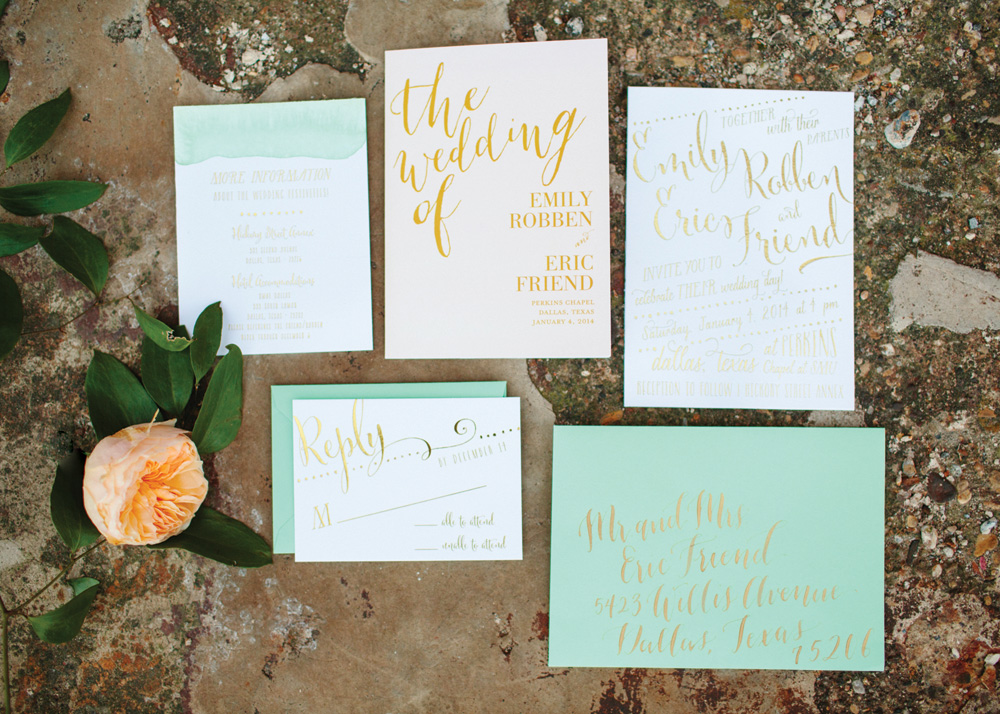 MORE INFORMATION
ABOUT THE WEDDING FESTIVITIES!
Hickory Street Annex
Dallas, Texas
Hotel Accommodations
the
wedding
of
EMILY
ROBBEN
and
ERIC
FRIEND
PERKINS CHAPEL
DALLAS, TEXAS
JANUARY 4, 2014
TOGETHER with their
PARENTS
Emily Robben
and
Eric Friend
INVITE YOU TO
celebrate THEIR wedding day!
Saturday, January 4, 2014 at 4 pm
dallas, texas at PERKINS
Chapel at SMU
RECEPTION TO FOLLOW HICKORY STREET ANNEX
Reply
BY DECEMBER
M
able to attend
unable to attend
Mr and Mrs
Eric Friend
5423 Willis Avenue
Dallas, Texas
75206